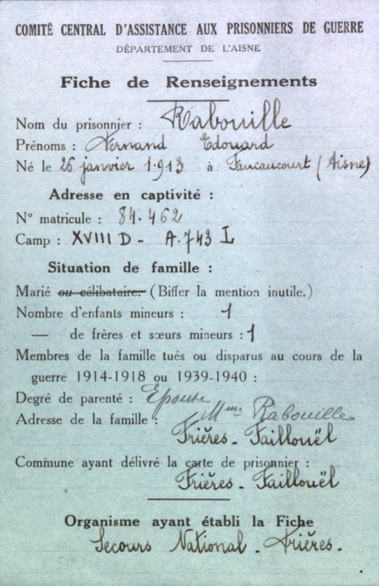 COMITÉ CENTRAL D'ASSISTANCE AUX PRISONNIERS DE GUERRE
DÉPARTEMENT DE L'AISNE
Fiche de Renseignements
Nom du prisonnier : Rabouille
Prénoms : Fernand Edouard
Né le 26 janvier 1913 à Faucaucourt (Aisne)
Adresse en captivité :
N° matricule : 84.462
Camp : XVIII D - A.743 L
Situation de famille :
Marié ou célibataire. (Biffer la mention inutile.)
Nombre d'enfants mineurs : 1
— de frères et sœurs mineurs : 1
Membres de la famille tués ou disparus au cours de la
guerre 1914-1918 ou 1939-1940 :
Degré de parenté : Epouse
Adresse de la famille : Mme Rabouille
Frières - Faillouël
Commune ayant délivré la carte de prisonnier :
Frières - Faillouël
Organisme ayant établi la Fiche
Secours National - Frières.